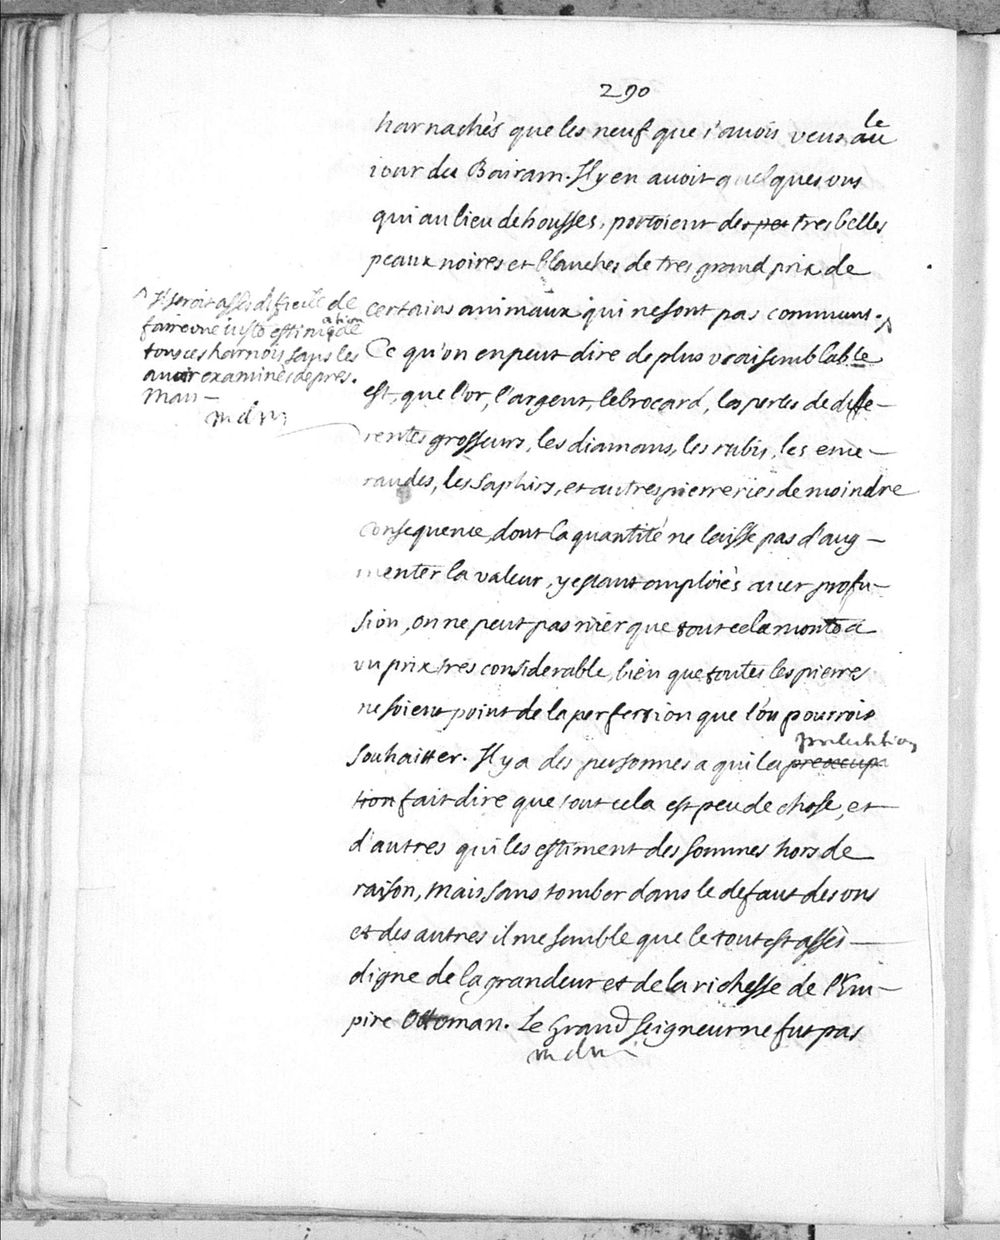 290
harnachés que les neuf que i'auois veus au le
iour du Bairam. Il y en auoit quelques vns
qui au lieu de housses, portoient des pea tres belles
peaux noires et blanches de tres grand prix de
certains animaux qui ne sont pas communs. ^
^ Il seroit assés dificile de
faire vne iuste estimation de
tous ces harnois sans les
auoir examinés de pres.
Mais
Ce qu'on en peut dire de plus vraisemblable
est, que l'or, l'argent, le brocard, les perles de diffe-
rentes grosseurs, les diamans, les rubis, les eme-
raudes, les Saphirs, et autres pierreries de moindre
consequence, dont la quantité ne laisse pas d'aug-
menter la valeur, y estant emploiés auec profu-
sion, on ne peut pas nier que tout cela monte a
vn prix tres considerable, bien que toutes les pierres
ne soient point de la perfection que l'on pourroit
souhaitter. Il y a des personnes a qui la preoccupa
tion fait dire que tout cela est peu de chose, et
d'autres qui les estiment des sommes hors de
raison, Mais sans tomber dans le defaut des vns
et des autres il me semble que le tout est assés
digne de la grandeur et de la richesse de l'Em-
pire Ottoman. Le Grand Seigneur ne fut pas